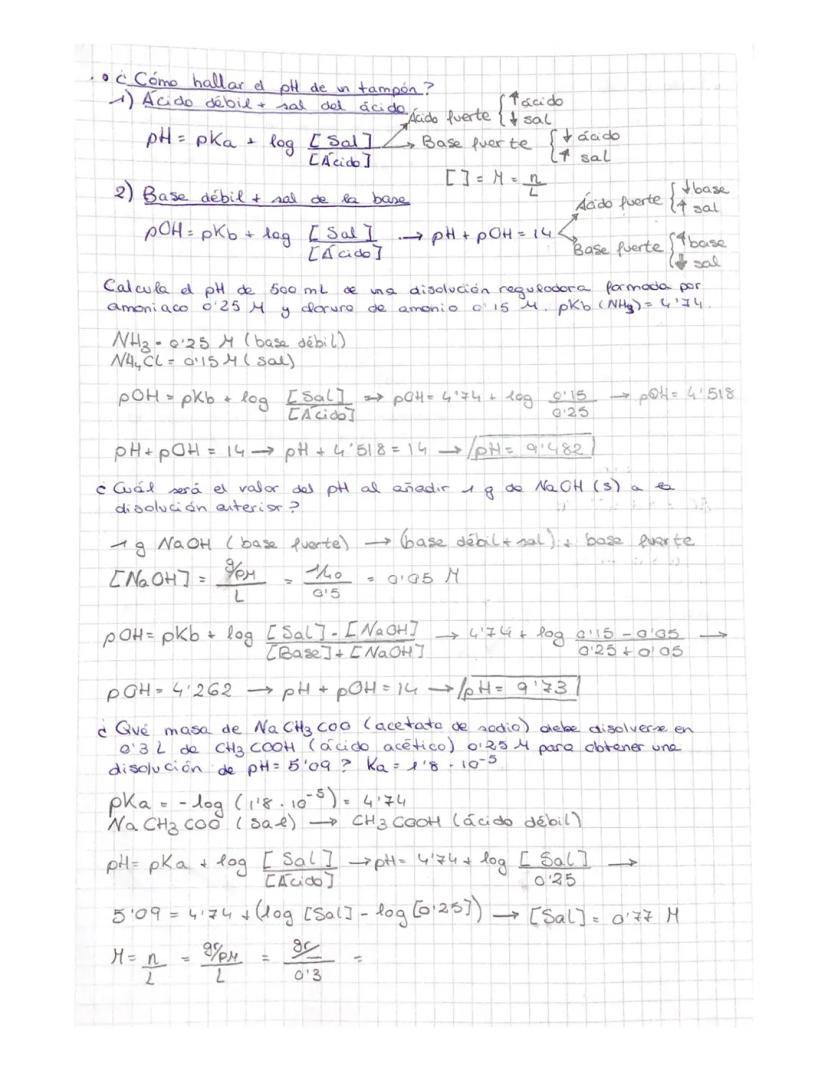 ¿Cómo hallar el pH de un tampón?
1) Ácido débil + sal del ácido
pH = pKa + log [Sal] / [Ácido]
Ácido fuerte { ↑ ácido ↓ sal
Base fuerte { ↓ ácido ↑ sal
[ ] = M = n / L
2) Base débil + sal de la base
pOH = pKb + log [Sal] / [Ácido] → pH + pOH = 14
Ácido fuerte { ↓ base ↑ sal
Base fuerte { ↑ base ↓ sal
Calcula el pH de 500 mL de una disolución reguladora formada por
amoniaco 0'25 M y cloruro de amonio 0'15 M. pKb (NH3) = 4'74.
NH3 = 0'25 M (base débil)
NH4Cl = 0'15 M (sal)
pOH = pKb + log [Sal] / [Ácido] → pOH = 4'74 + log 0'15 / 0'25 → pOH = 4'518
pH + pOH = 14 → pH + 4'518 = 14 → pH = 9'482
¿Cuál será el valor del pH al añadir 1 g de NaOH (s) a la
disolución anterior?
1 g NaOH (base fuerte) → (base débil + sal) + base fuerte
[NaOH] = g/PM / L = 1/40 / 0'5 = 0'05 M
pOH = pKb + log [Sal] - [NaOH] / [Base] + [NaOH] → 4'74 + log 0'15 - 0'05 / 0'25 + 0'05 →
pOH = 4'262 → pH + pOH = 14 → pH = 9'73
¿Qué masa de NaCH3COO (acetato de sodio) debe disolverse en
0'3 L de CH3COOH (ácido acético) 0'25 M para obtener una
disolución de pH = 5'09? Ka = 1'8 · 10-5
pKa = - log (1'8 · 10-5) = 4'74
NaCH3COO (sal) → CH3COOH (ácido débil)
pH = pKa + log [Sal] / [Ácido] → pH = 4'74 + log [Sal] / 0'25 →
5'09 = 4'74 + (log [Sal] - log [0'25]) → [Sal] = 0'77 M
M = n / L = gr/PM / L = gr/ / 0'3 =